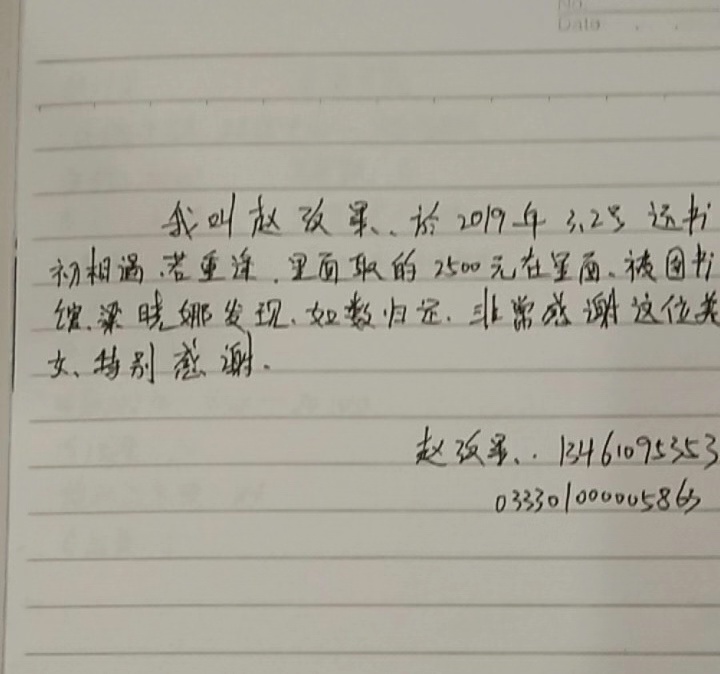 No
Date
我叫赵改军、于2019年3.2号还书
初相遇.若重逢.里面取的2500元在里面、被图书
馆、梁晓娜发现、如数归还.非常感谢这位美
女、特别感谢.
赵改军、. 13461095353
03330100005863